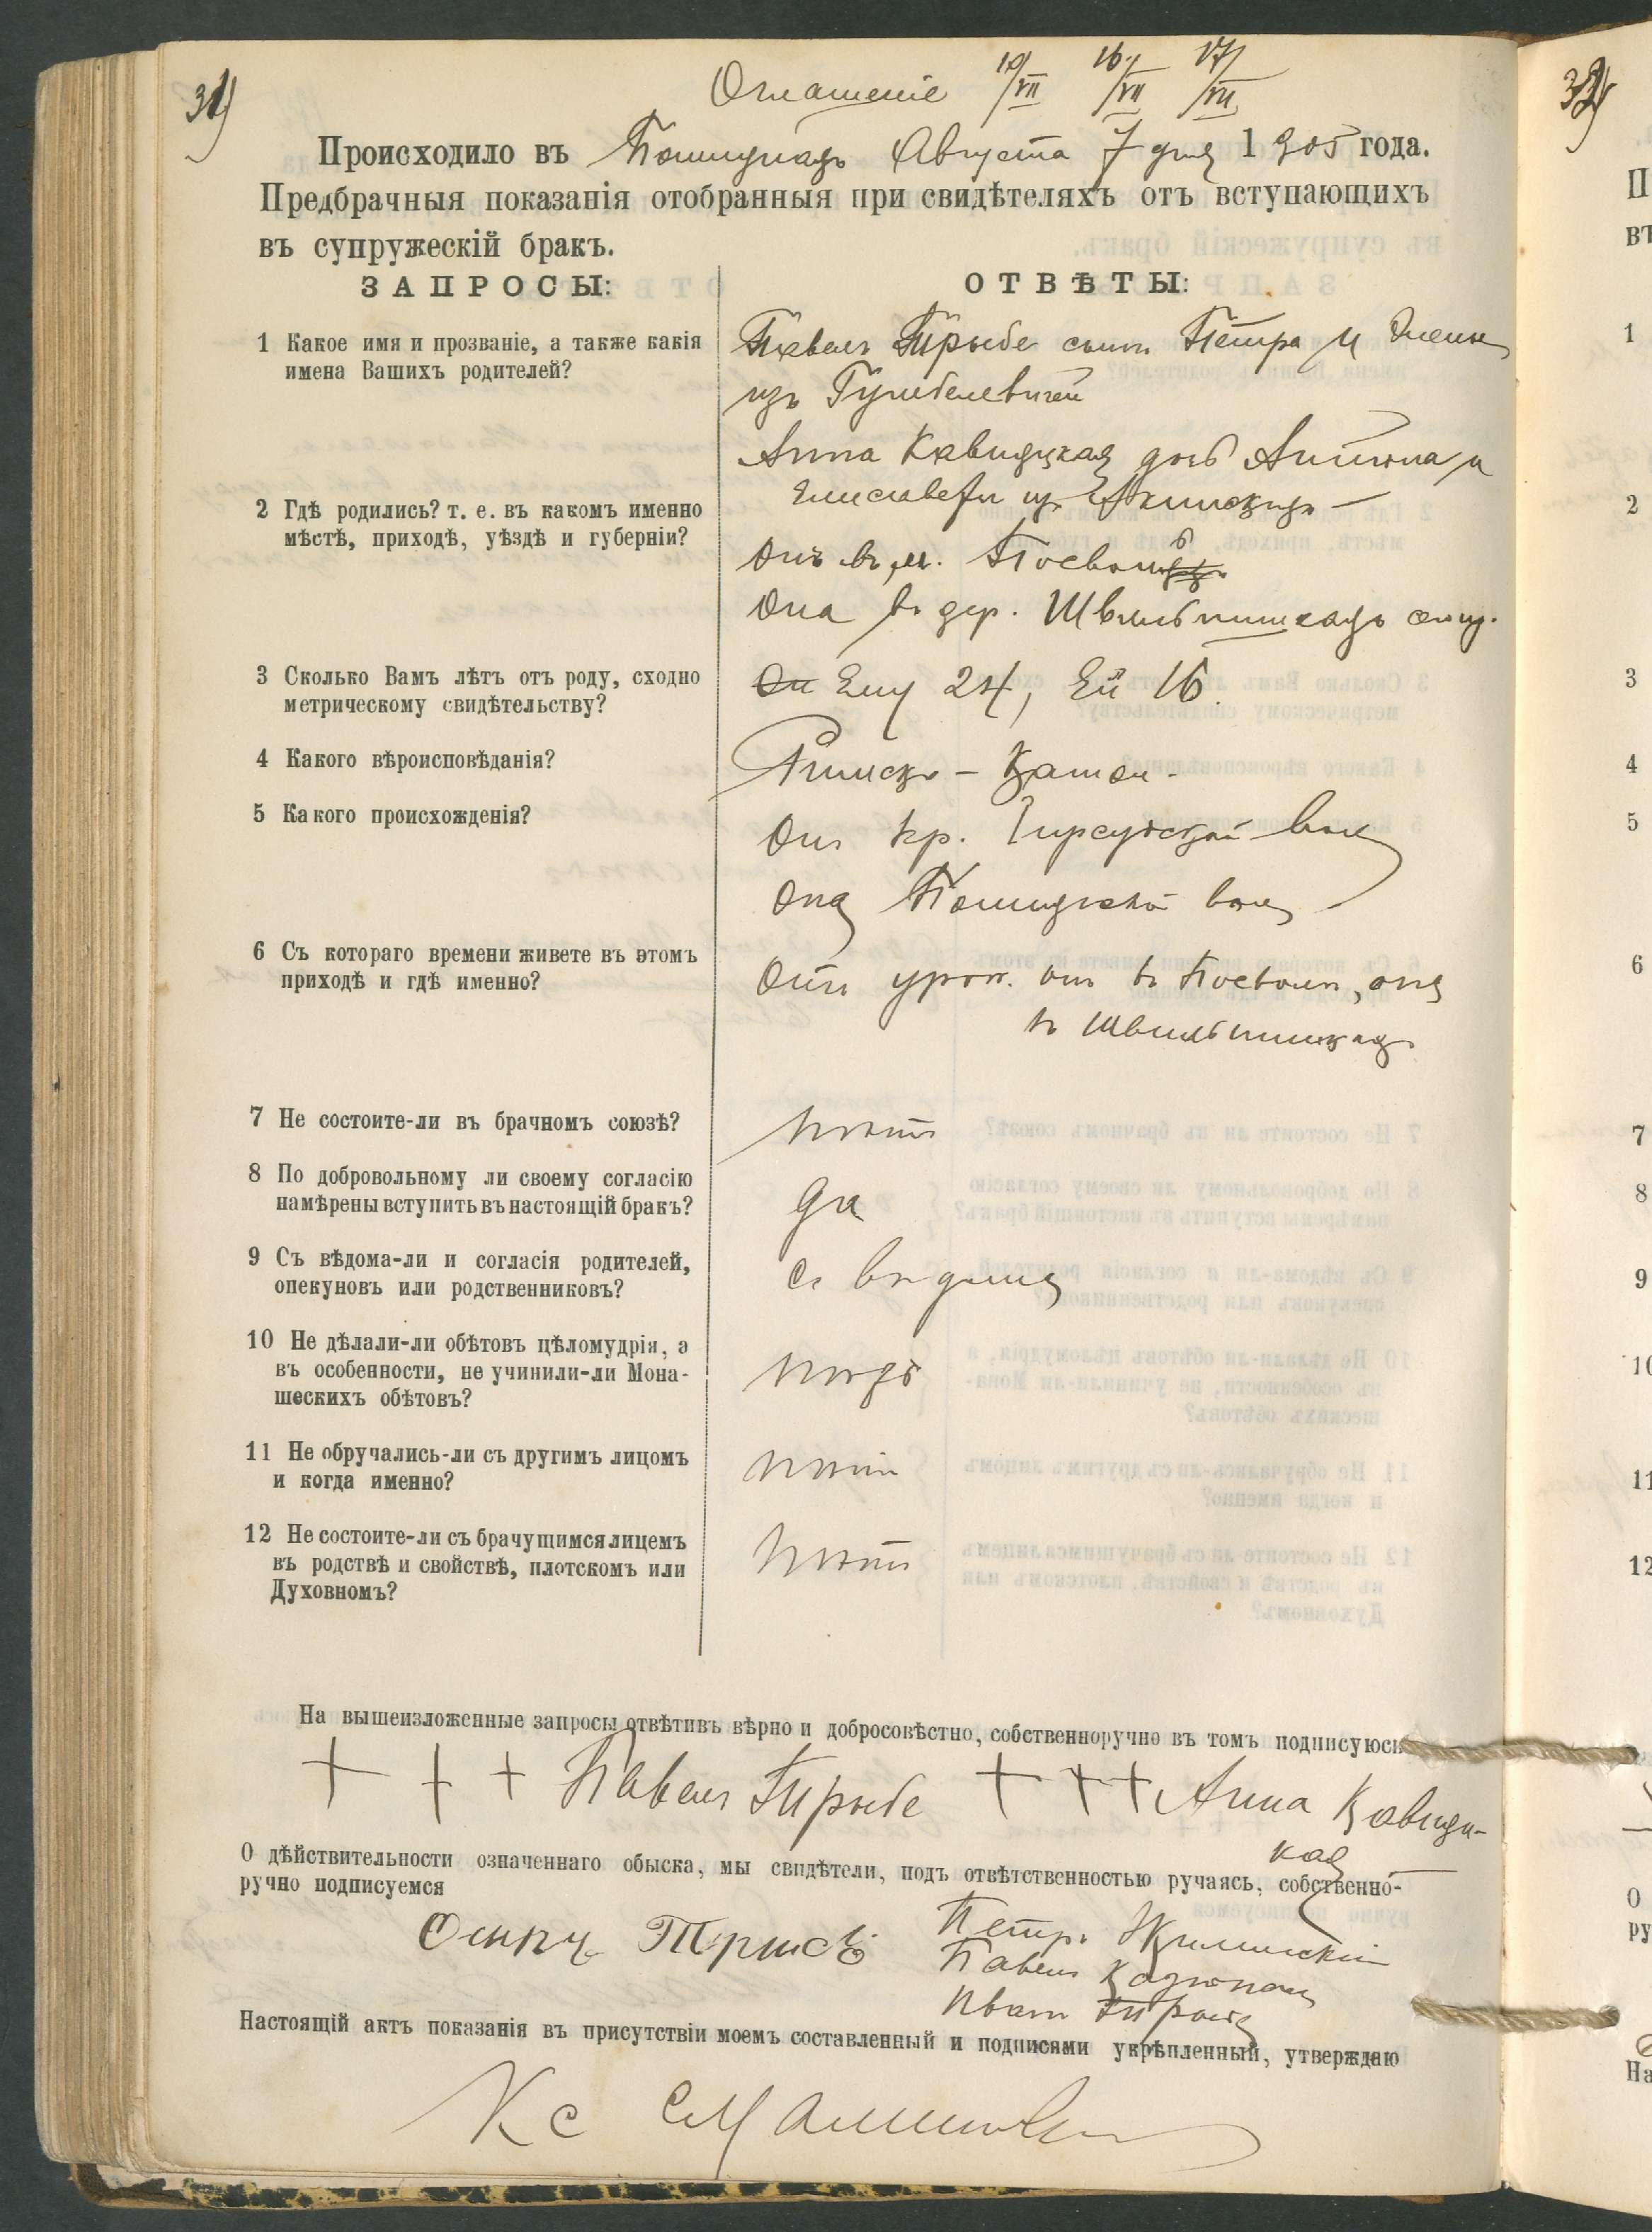 31)
Оглашеніе 10/VII 16/VII 17/VII
Происходило въ Августа 7 дня 1905 года.
Предбрачныя показанія отобранныя при свидѣтеляхъ отъ вступающихъ
въ супружескій бракъ.
ЗАПРОСЫ:
ОТВѢТЫ:
1 Какое имя и прозваніе, а также какія
имена Вашихъ родителей?
Павелъ Трыбе сынъ Петра и Елены
изъ
Анна дочь Антона и
Елисаветы изъ
2 Гдѣ родились? т. е. въ какомъ именно
мѣстѣ, приходѣ, уѣздѣ и губерніи?
Онъ въ м. Посволь
Она въ дер. Швильпишкахъ
3 Сколько Вамъ лѣтъ отъ роду, сходно
метрическому свидѣтельству?
Он Ему 24, Ей 16.
4 Какого вѣроисповѣданія?
Римско-Катол.
5 Какого происхожденія?
Онъ кр. вол
Она вол
6 Съ котораго времени живете въ этомъ
приходѣ и гдѣ именно?
Отъ урож. онъ въ Посволѣ, она
въ Швильпишкахъ
7 Не состоите-ли въ брачномъ союзѣ?
Нѣтъ
8 По добровольному ли своему согласію
намѣрены вступить въ настоящій бракъ?
Да
9 Съ вѣдома-ли и согласія родителей,
опекуновъ или родственниковъ?
Съ вѣдома
10 Не дѣлали-ли обѣтовъ цѣломудрія, а
въ особенности, не учинили-ли Мона-
шескихъ обѣтовъ?
11 Не обручались-ли съ другимъ лицомъ
и когда именно?
Нѣтъ
12 Не состоите-ли съ брачущимся лицемъ
въ родствѣ и свойствѣ, плотскомъ или
Духовномъ?
Нѣтъ
На вышеизложенные запросы отвѣтивъ вѣрно и добросовѣстно, собственноручно въ томъ подписуюсь
+ + + Павелъ Трыбе + + + Анна
кая
О дѣйствительности означеннаго обыска, мы свидѣтели, подъ отвѣтственностью ручаясь, собственно-
ручно подписуемся
Петръ
Павелъ
Иванъ
Настоящій актъ показанія въ присутствіи моемъ составленный и подписями укрѣпленный, утверждаю
Кс
32)
П
въ
1
2
3
4
5
6
7
8
9
10
11
12
О
ру
На